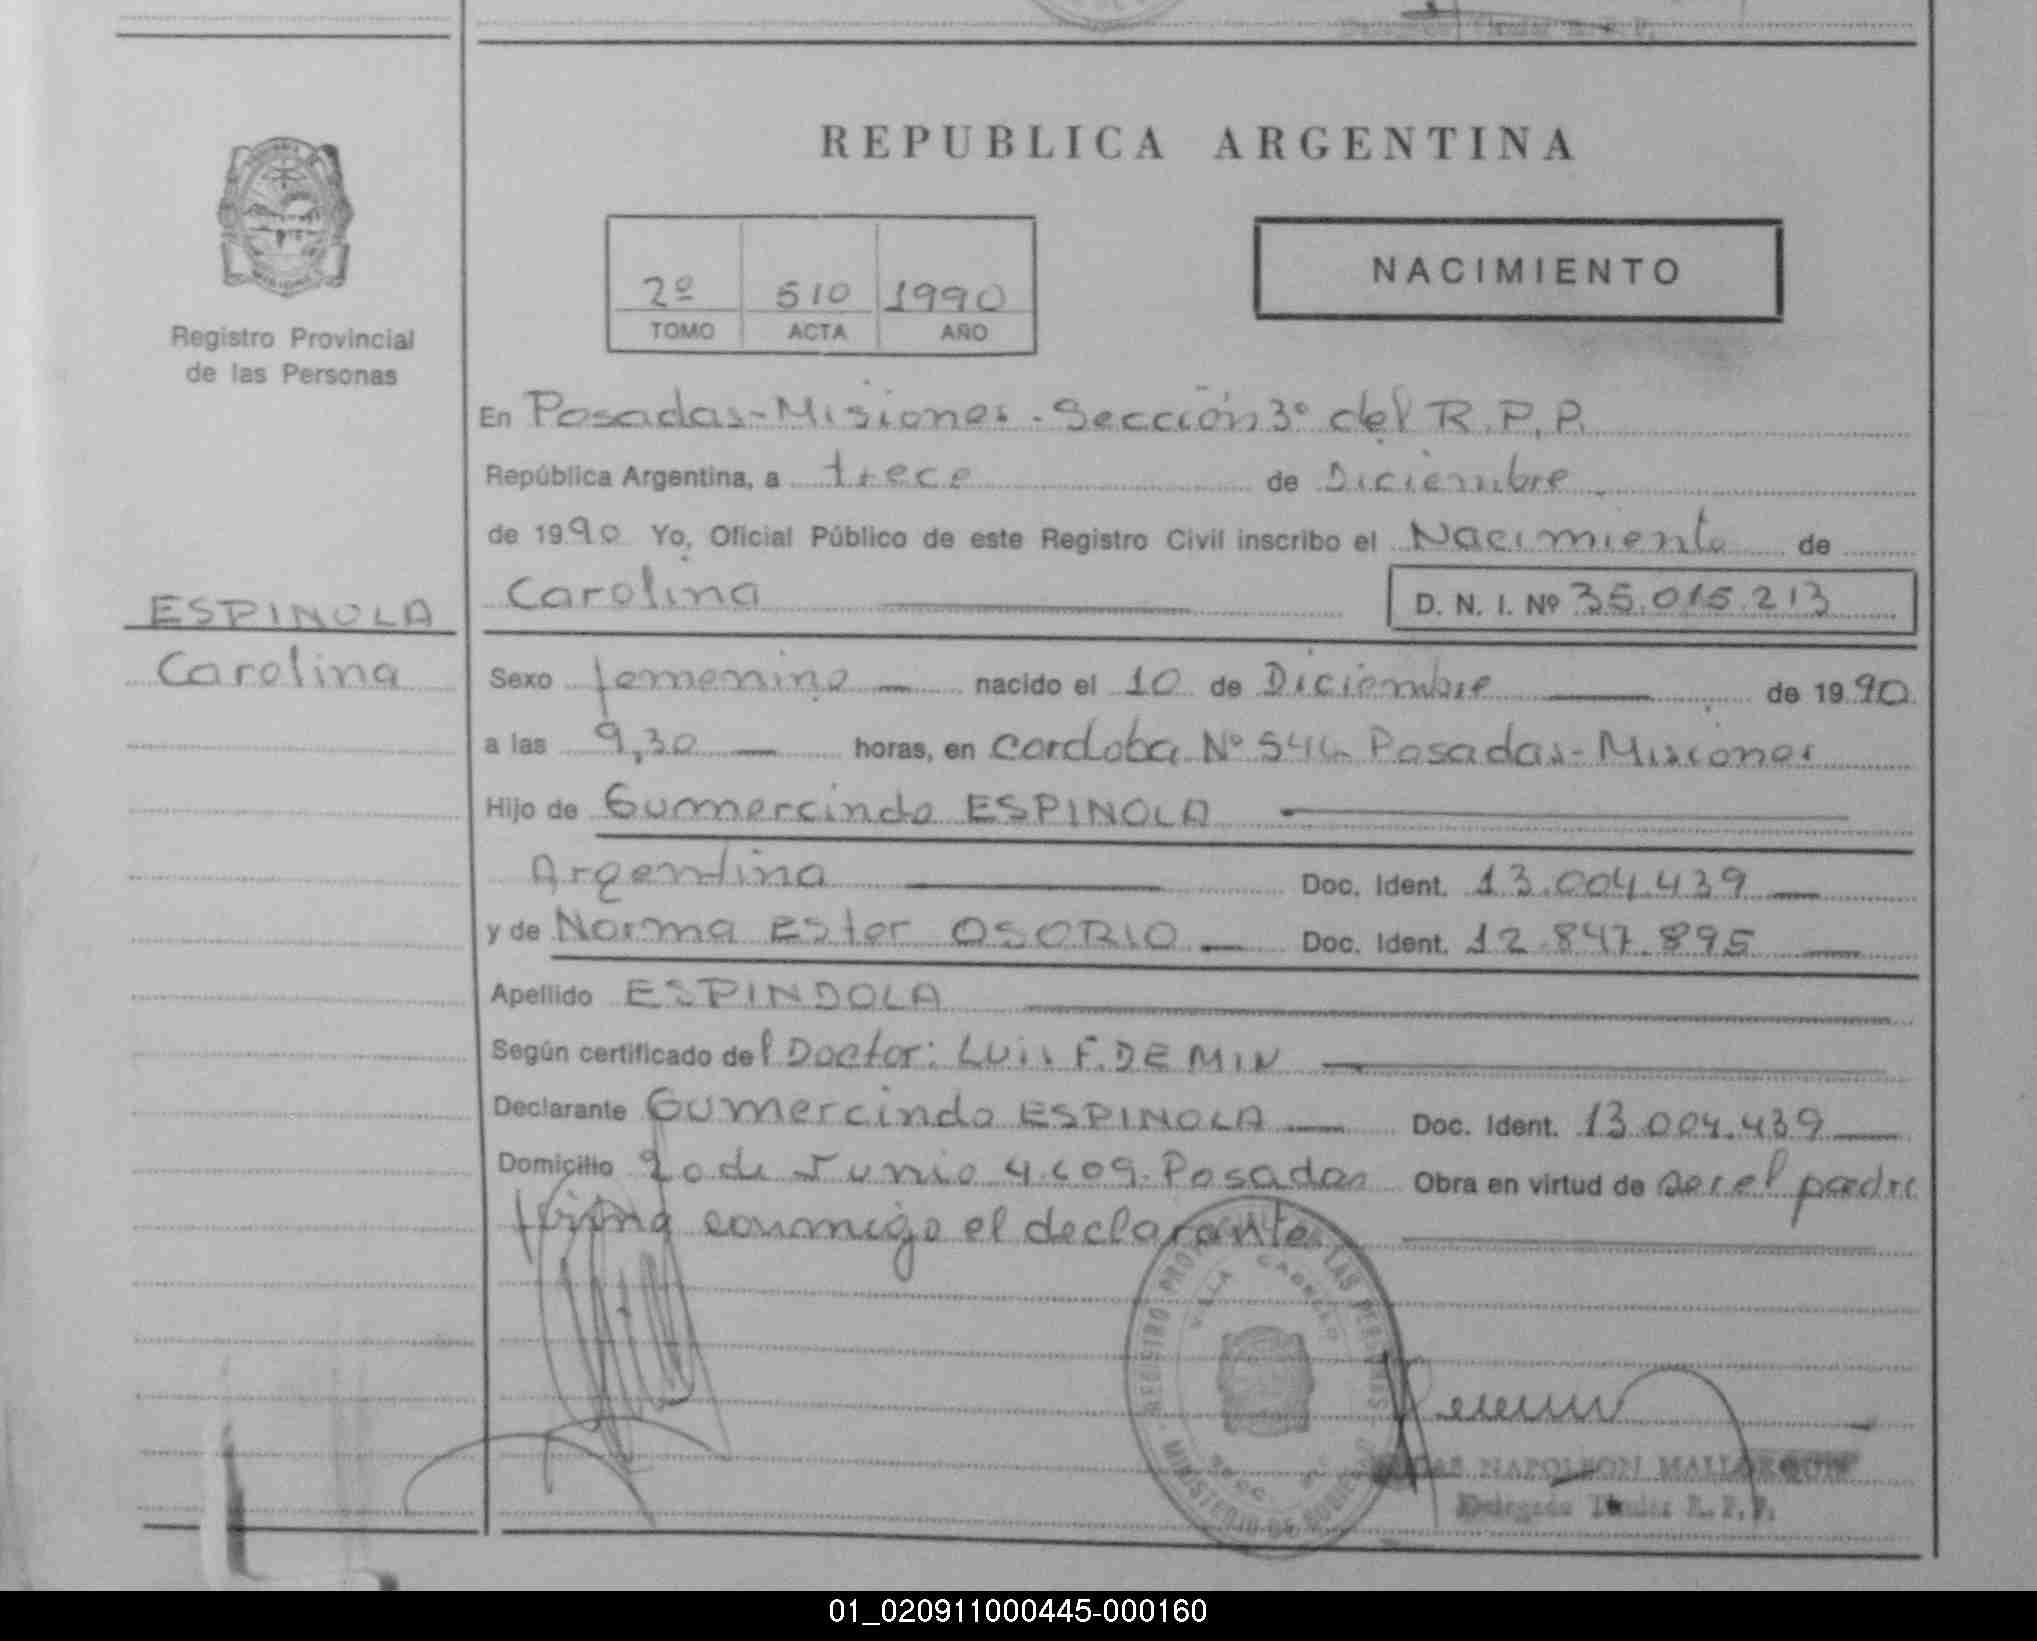 REPUBLICA ARGENTINA
NACIMIENTO
2º 510 1990
TOMO ACTA AÑO
Registro Provincial
de las Personas
En Posadas-Misiones-Sección 3º del R.P.P.
República Argentina, a trece de Diciembre
de 1990 Yo, Oficial Público de este Registro Civil inscribo el Nacimiento de
Carolina D. N. I. Nº 35.015.213
ESPINOLA
Carolina
Sexo femenino nacido el 10 de Diciembre de 1990
a las 9,30 horas, en Cordoba Nº Posadas-Misiones
Hijo de Gumercindo ESPINOLA
Argentina Doc. Ident. 13.004.439
y de Norma Ester OSORIO Doc. Ident. 12.847.895
Apellido ESPINDOLA
Según certificado del Doctor: Luis F. DE MIN
Declarante Gumercindo ESPINOLA Doc. Ident. 13.004.439
Domicilio 20 de Junio Posadas Obra en virtud de ser el padre
firma conmigo el declarante
REGISTRO LAS PERSONAS
VILLA
MINISTERIO DE
NAPOLEON
Delegado Titular R.P.P.
01_020911000445-000160